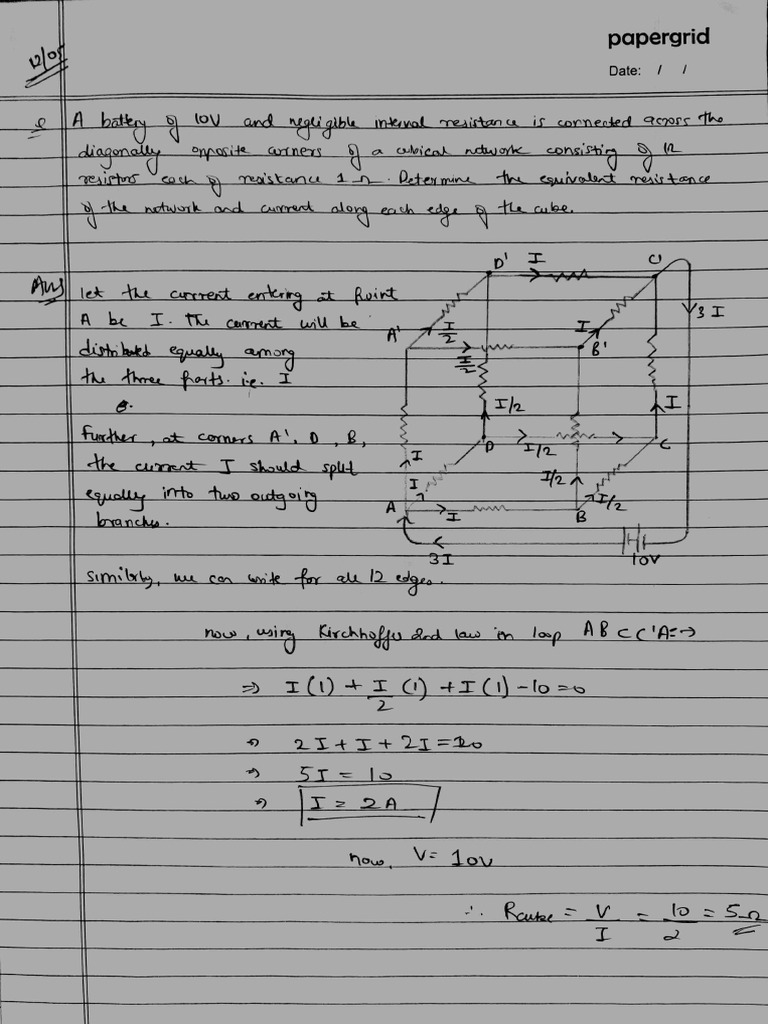 papergrid
Date: / /
12/05
Q A battery of 10V and negligible internal resistance is connected across the
diagonally opposite corners of a cubical network consisting of 12
resistors each of resistance 1 Ω. Determine the equivalent resistance
of the network and current along each edge of the cube.
Ans let the current entering at Point
A be I. The current will be
distributed equally among
the three parts. i.e. I
Further, at corners A', D, B,
the current I should split
equally into two outgoing
branches.
D' I C'
3 I
A' I/2 I B'
I/2
I/2 I
D I/2 C
I I I/2 I/2
A I B
3I 10V
Similarly, we can write for all 12 edges.
now, using Kirchhoff's 2nd law in loop ABCC'A⇒
⇒ I(1) + I/2 (1) + I(1) - 10 = 0
⇒ 2I + I + 2I = 20
⇒ 5I = 10
⇒ I = 2A
now, V = 10V
∴ Rcube = V/I = 10/2 = 5Ω